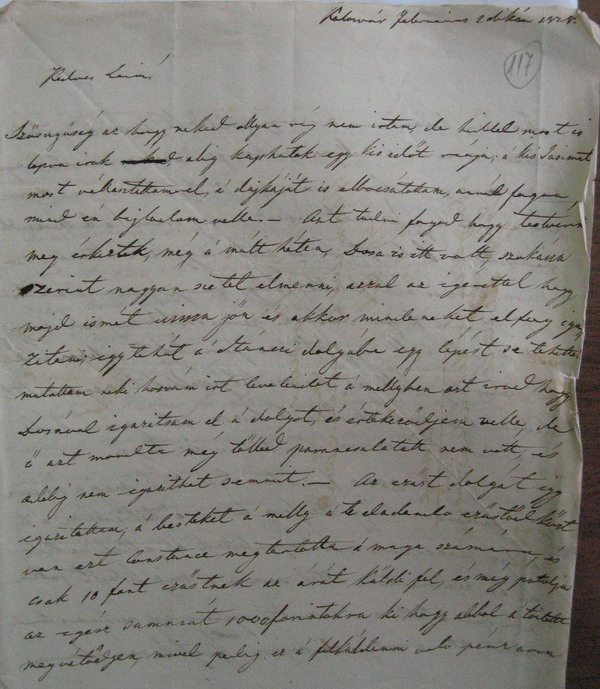 Kolosvár Februarius 2dikán 1828.
117
Kedves Laim!
Szörnyűség az hogy neked ollyan rég nem irtam, de hidd el most is
lopva irok alig kaphatok egy kis időt reája; á kis Susimat
most választottam el, á dajkáját is elbocsátottam,
mind én bajlodom velle. — Azt tudni fogod hogy testvérem
meg érkeztek, még á mult héten, Dosa is itt volt, szokása
szerint nagyon sietet elmenni, azzal az igerettel hogy
majd ismét vissza jön és akkor mindeneket el fog iga-
zitani, igy tehát á dolgaba egy lépést se tehettem
mutattam neki hozzám irt leveledet á mellyben azt irod hogy
Dosával igazitsam el á dolgot, és értekeződjem velle, de
ő azt mondta még tölled parancsolatot nem vett, és
addig nem igazithat semmit. — Az ezüst dolgát igy
igazitottam, á besteket á melly á te eladando ezüstöd közt
van ezt Constance megtartotta á maga számára, és
csak 10 font ezüstnek az árát küldi fel, és még potolja
az egész summát 1000 forintokra ki hogy abbol á
megvétődjen, mivel pedig ez á felküldenni való pénz